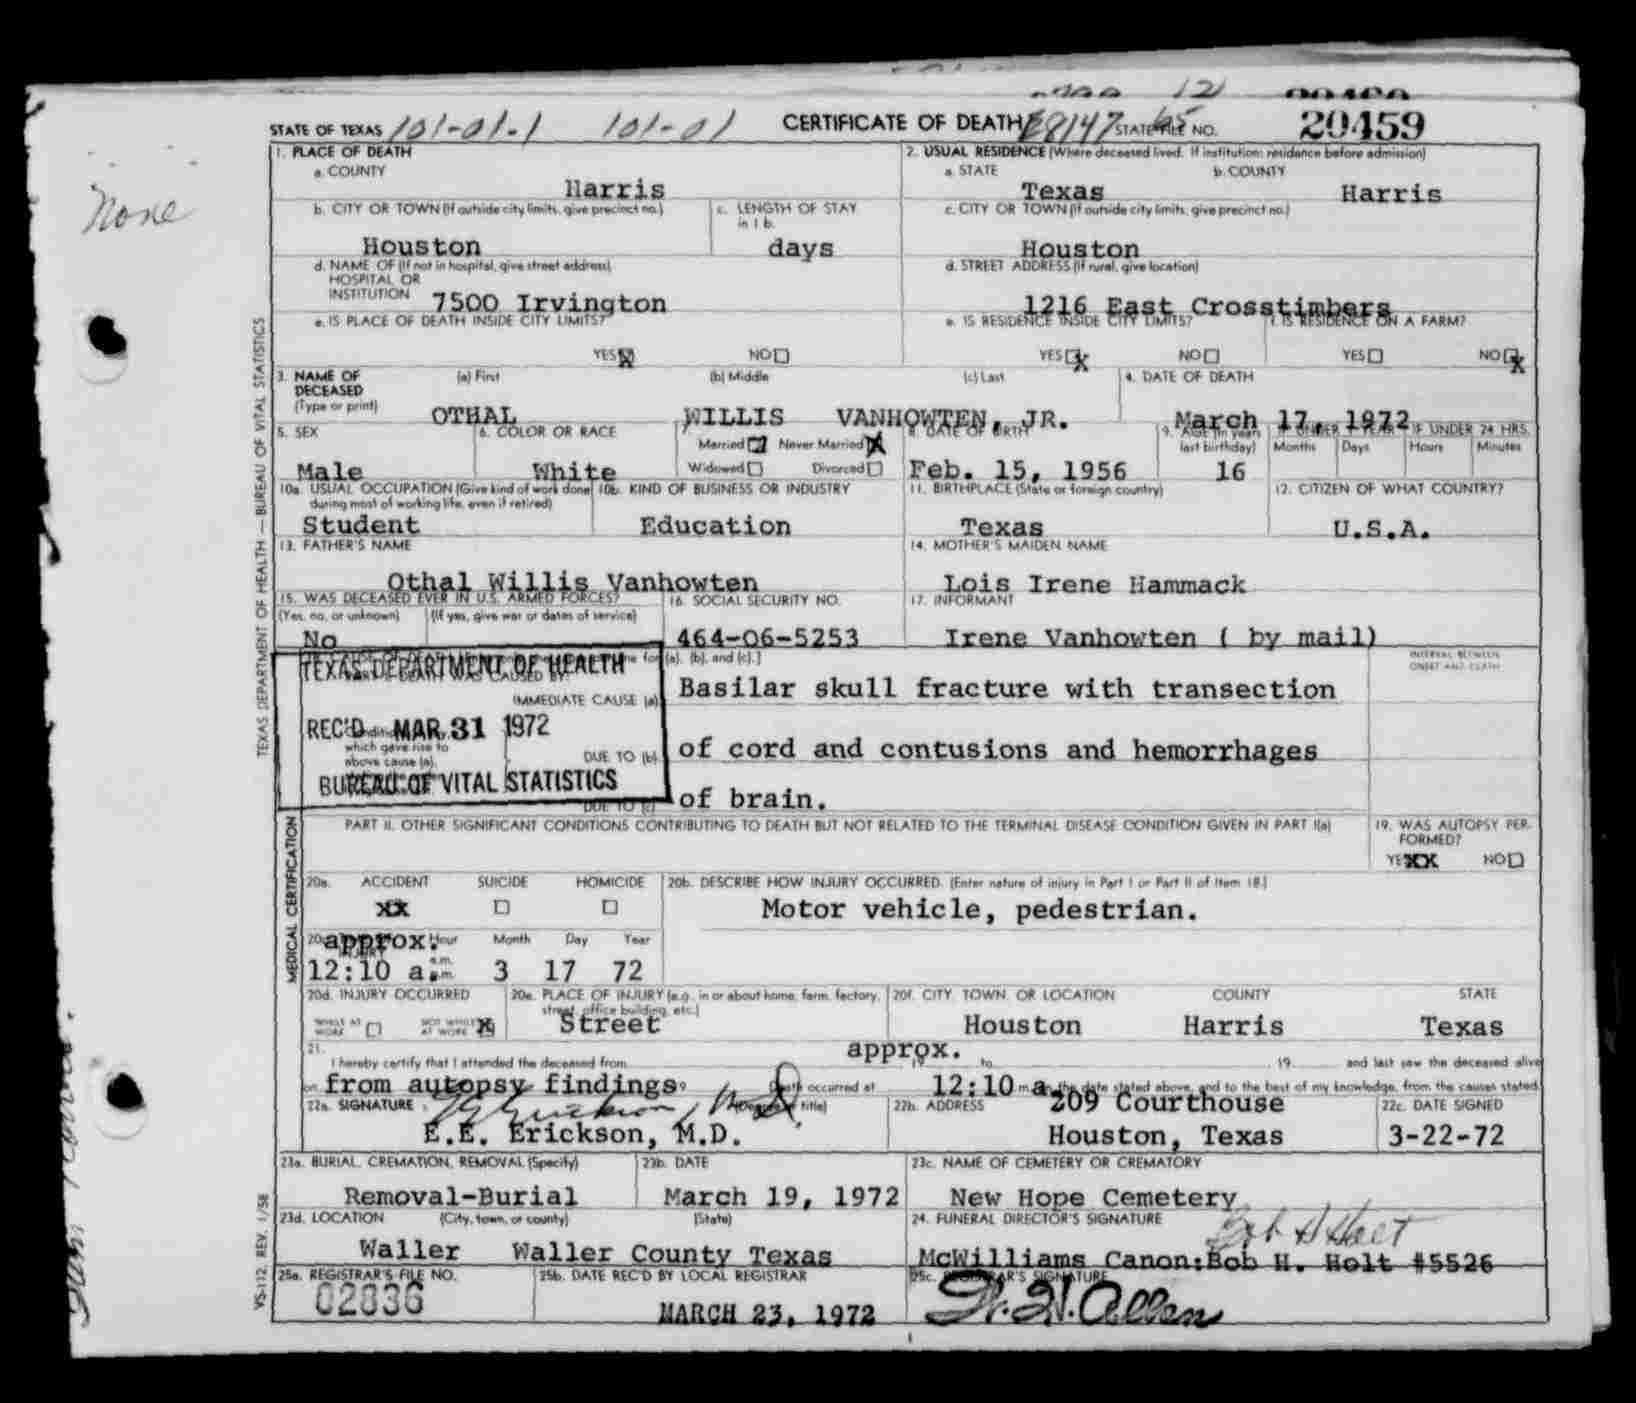 None
STATE OF TEXAS 101-01-1 101-01 CERTIFICATE OF DEATH E8147 65 STATE FILE NO. 20459
1. PLACE OF DEATH
2. USUAL RESIDENCE (Where deceased lived. If institution: residence before admission)
a. COUNTY
Harris
a. STATE
Texas
b. COUNTY
Harris
b. CITY OR TOWN (If outside city limits, give precinct no.)
Houston
c. LENGTH OF STAY
in 1 b.
days
c. CITY OR TOWN (If outside city limits, give precinct no.)
Houston
d. NAME OF (If not in hospital, give street address)
HOSPITAL OR
INSTITUTION 7500 Irvington
d. STREET ADDRESS (If rural, give location)
1216 East Crosstimbers
e. IS PLACE OF DEATH INSIDE CITY LIMITS?
YES X NO
e. IS RESIDENCE INSIDE CITY LIMITS?
YES X NO
f. IS RESIDENCE ON A FARM?
YES NO X
3. NAME OF
DECEASED
(Type or print)
(a) First
OTHAL
(b) Middle
WILLIS
(c) Last
VANHOWTEN, JR.
4. DATE OF DEATH
March 17, 1972
5. SEX
Male
6. COLOR OR RACE
White
7.
Married Never Married X
Widowed Divorced
8. DATE OF BIRTH
Feb. 15, 1956
9. AGE (In years
last birthday)
16
IF UNDER 1 YEAR IF UNDER 24 HRS.
Months Days Hours Minutes
10a. USUAL OCCUPATION (Give kind of work done
during most of working life, even if retired)
Student
10b. KIND OF BUSINESS OR INDUSTRY
Education
11. BIRTHPLACE (State or foreign country)
Texas
12. CITIZEN OF WHAT COUNTRY?
U.S.A.
13. FATHER'S NAME
Othal Willis Vanhowten
14. MOTHER'S MAIDEN NAME
Lois Irene Hammack
15. WAS DECEASED EVER IN U.S. ARMED FORCES?
(Yes, no, or unknown) (If yes, give war or dates of service)
No
16. SOCIAL SECURITY NO.
464-06-5253
17. INFORMANT
Irene Vanhowten ( by mail)
for (a), (b), and (c).]
INTERVAL BETWEEN
ONSET AND DEATH
TEXAS DEPARTMENT OF HEALTH
DEATH WAS CAUSED BY:
IMMEDIATE CAUSE (a) Basilar skull fracture with transection
REC'D MAR 31 1972
which gave rise to
above cause (a),
DUE TO (b) of cord and contusions and hemorrhages
BUREAU OF VITAL STATISTICS
DUE TO (c) of brain.
PART II. OTHER SIGNIFICANT CONDITIONS CONTRIBUTING TO DEATH BUT NOT RELATED TO THE TERMINAL DISEASE CONDITION GIVEN IN PART I(a)
19. WAS AUTOPSY PER-
FORMED?
YES XX NO
20a. ACCIDENT SUICIDE HOMICIDE
XX
20b. DESCRIBE HOW INJURY OCCURRED. (Enter nature of injury in Part I or Part II of Item 18.)
Motor vehicle, pedestrian.
20c. approx. Hour Month Day Year
INJURY
12:10 a.m. p.m. 3 17 72
20d. INJURY OCCURRED
WHILE AT
WORK
NOT WHILE
AT WORK X
20e. PLACE OF INJURY (e.g., in or about home, farm, factory,
street, office building, etc.)
Street
20f. CITY, TOWN, OR LOCATION COUNTY STATE
Houston Harris Texas
21.
approx.
I hereby certify that I attended the deceased from 19 to 19 and last saw the deceased alive
on from autopsy findings, 19 Death occurred at 12:10 a. m. on the date stated above, and to the best of my knowledge, from the causes stated.
22a. SIGNATURE E E Erickson, M.D. (Degree or title)
E.E. Erickson, M.D.
22b. ADDRESS
209 Courthouse
Houston, Texas
22c. DATE SIGNED
3-22-72
23a. BURIAL, CREMATION, REMOVAL (Specify)
Removal-Burial
23b. DATE
March 19, 1972
23c. NAME OF CEMETERY OR CREMATORY
New Hope Cemetery
23d. LOCATION (City, town, or county) (State)
Waller Waller County Texas
24. FUNERAL DIRECTOR'S SIGNATURE
Bob H Holt
McWilliams Canon:Bob H. Holt #5526
25a. REGISTRAR'S FILE NO.
02836
25b. DATE REC'D BY LOCAL REGISTRAR
MARCH 23, 1972
25c. REGISTRAR'S SIGNATURE
W. H. Allen
TEXAS DEPARTMENT OF HEALTH — BUREAU OF VITAL STATISTICS
MEDICAL CERTIFICATION
VS-112, REV. 1/58